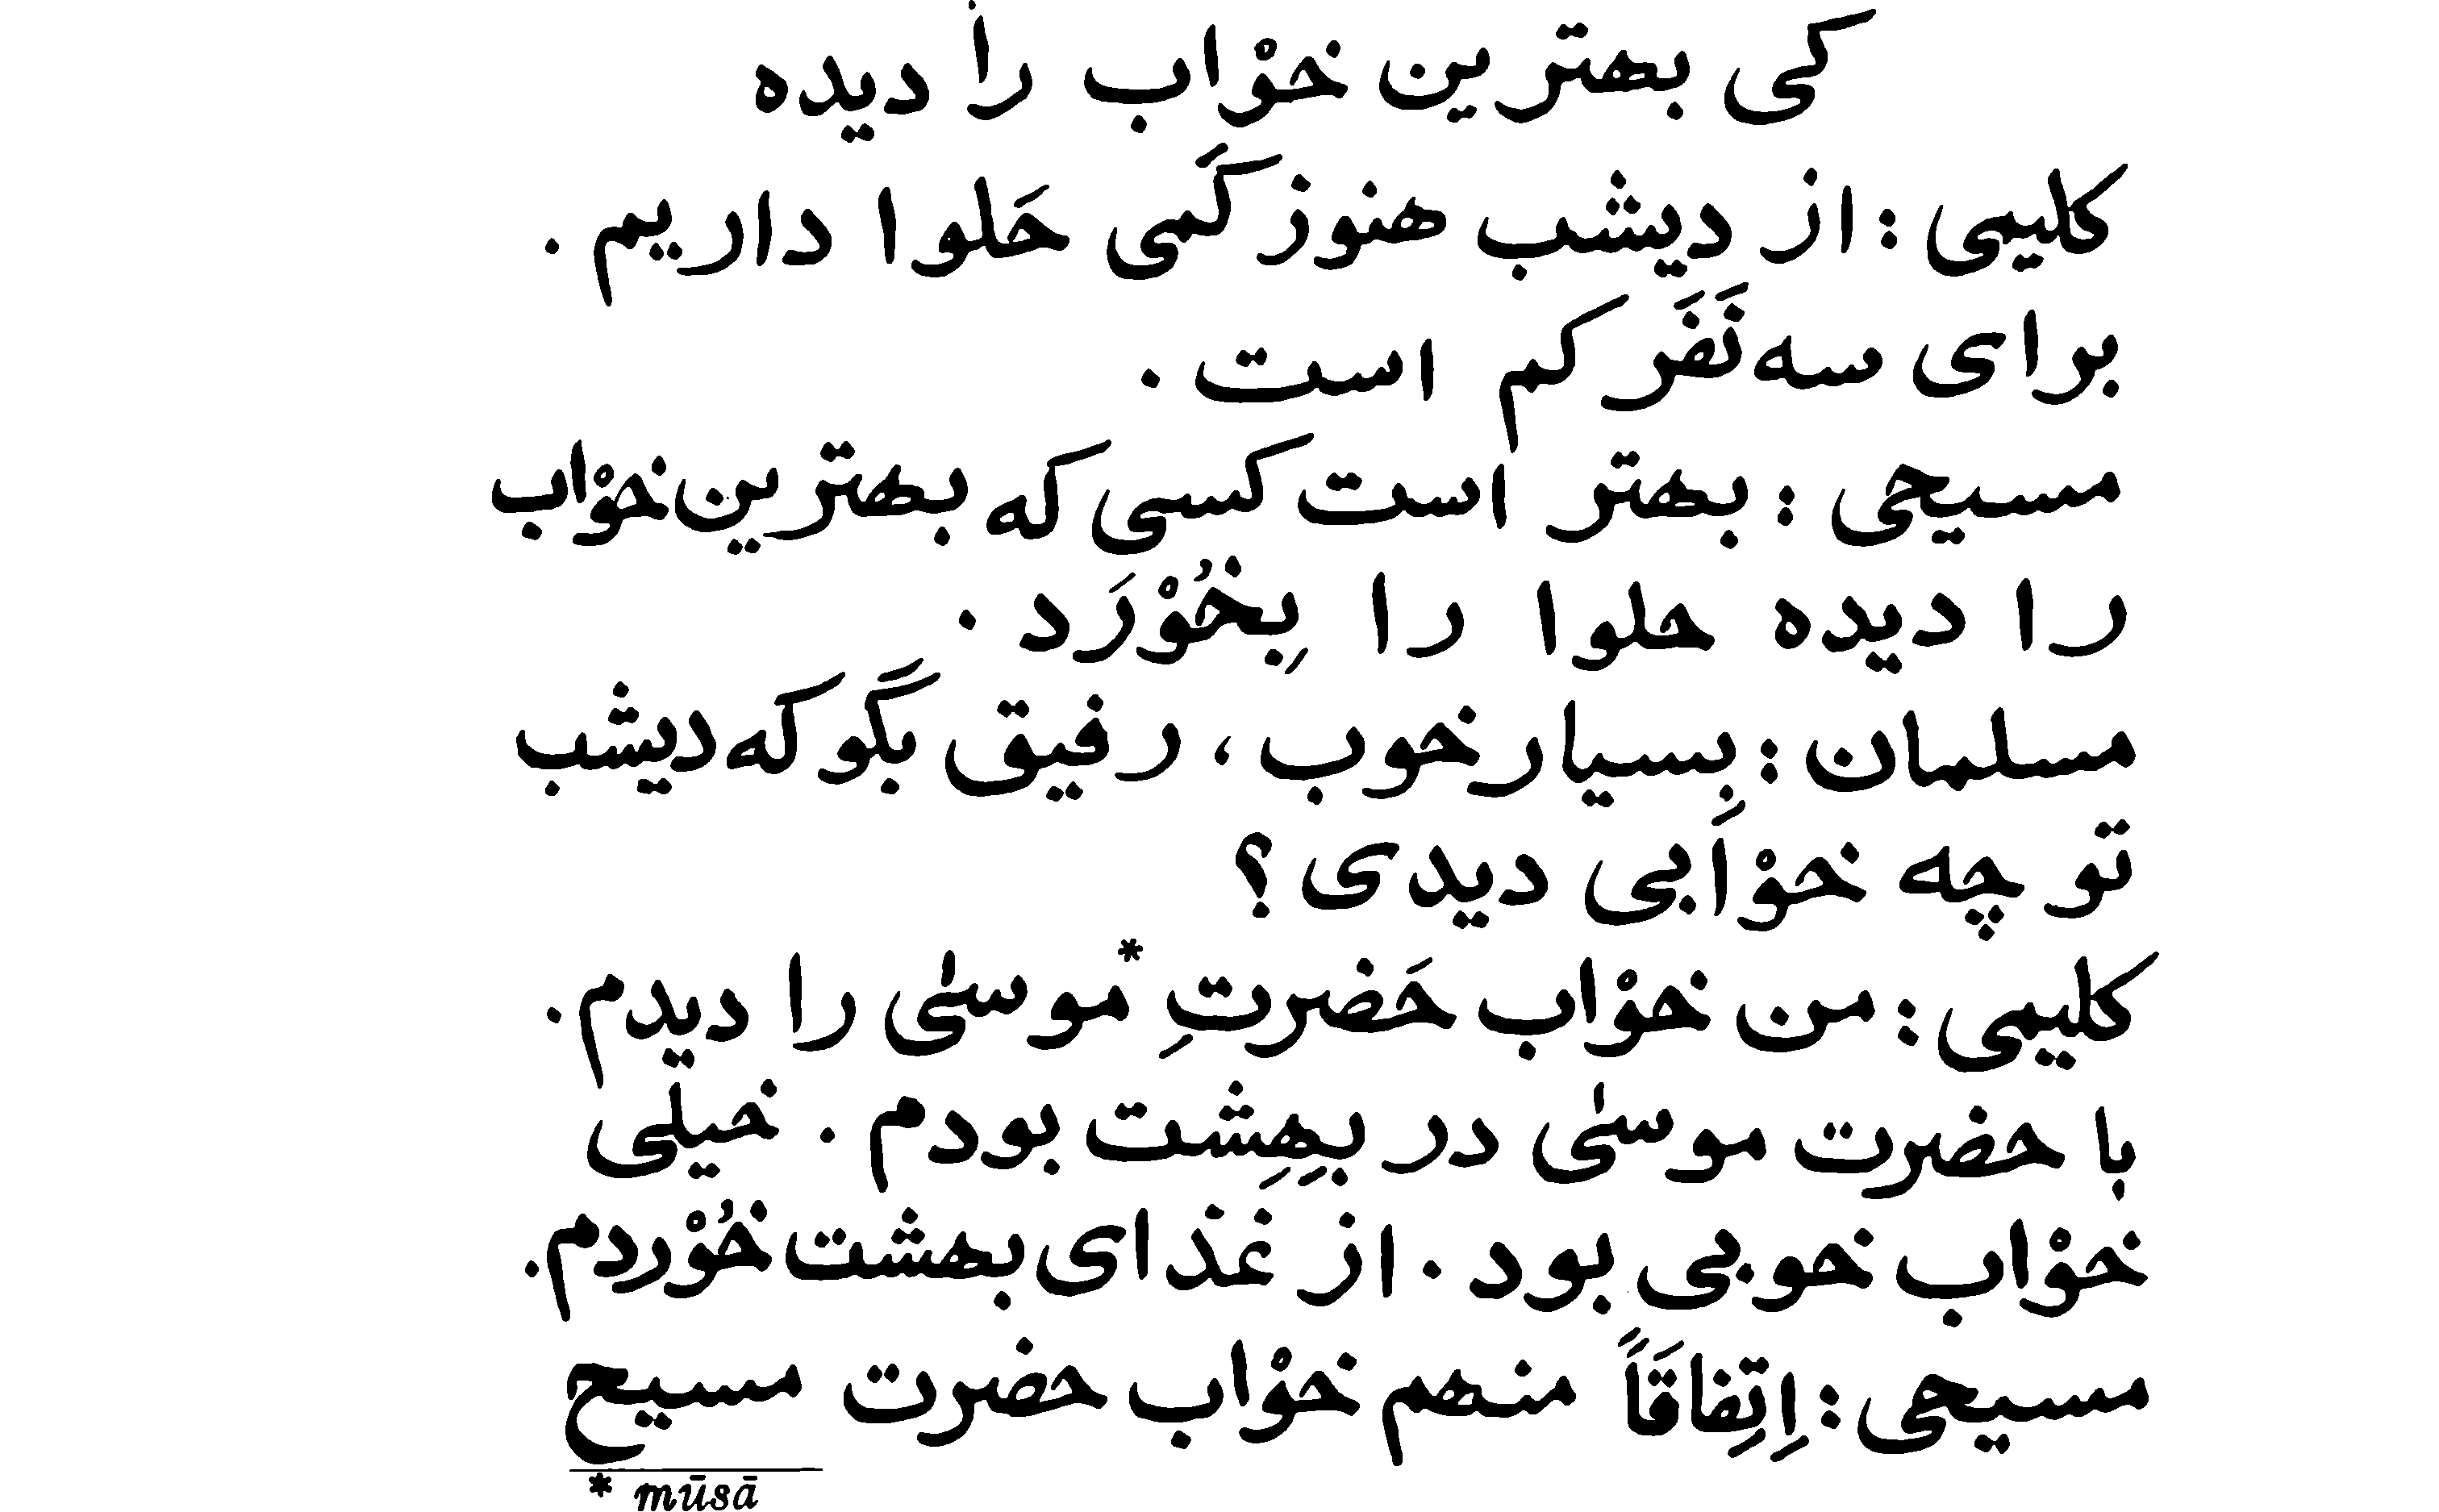 کی بهترین خوْاب را دیده
کلیمی : از دیشب هنوز کمی حَلوا داریم .
برای سه نَفَر کم است .
مسیحی : بهتر است کسی که بهترین خوْاب
را دیده حلوا را بِخُوْرَد .
مسلمان : بسیار خوب ، رفیق بگو که دیشب
تو چه خوْابی دیدی ؟
کلیمی : من خوْاب حَضرتِ موسیٰ* را دیدم .
با حضرت موسیٰ در بِهِشت بودم . خیلی
خوْاب خوبی بود . از غَذای بهشت خُوْردم .
مسیحی : اِتِّفاقاً منهم خوْاب حضرت مسیح
* mūsā